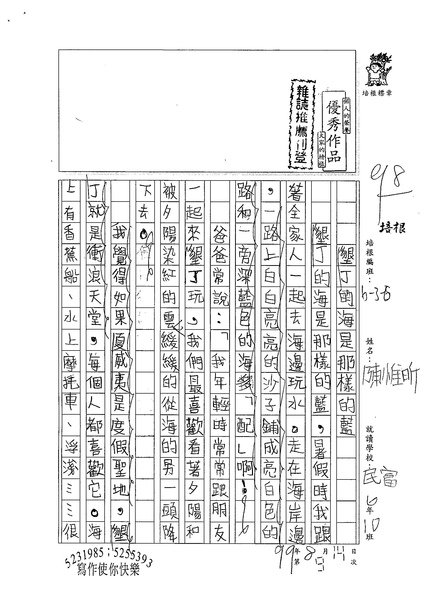 培根標章
個人的榮譽
優秀作品
大家的榜樣
雜誌推薦刊登
98
培根
培根編班：
5-36
姓名：
陳惟昕
就讀學校
民富
6年10班
墾丁的海是那樣的藍
墾丁的海是那樣的藍，暑假時我跟
著全家人一起去海邊玩水。走在海岸邊
，一路上白白亮亮的沙子鋪成亮白色的
路和一旁深藍色的海錢「配」啊！
爸爸常說：「我年輕時常常跟朋友
一起來墾丁玩，我們最喜歡看著夕陽和
被夕陽染紅的雲緩緩的從海的另一頭降
下去。」
我覺得如果夏威夷是度假聖地，墾
丁就是衝浪天堂，每個人都喜歡它。海
上有香蕉船、水上摩托車、浮潛……很
99年8月
第 次
5231985；5255393
寫作使你快樂